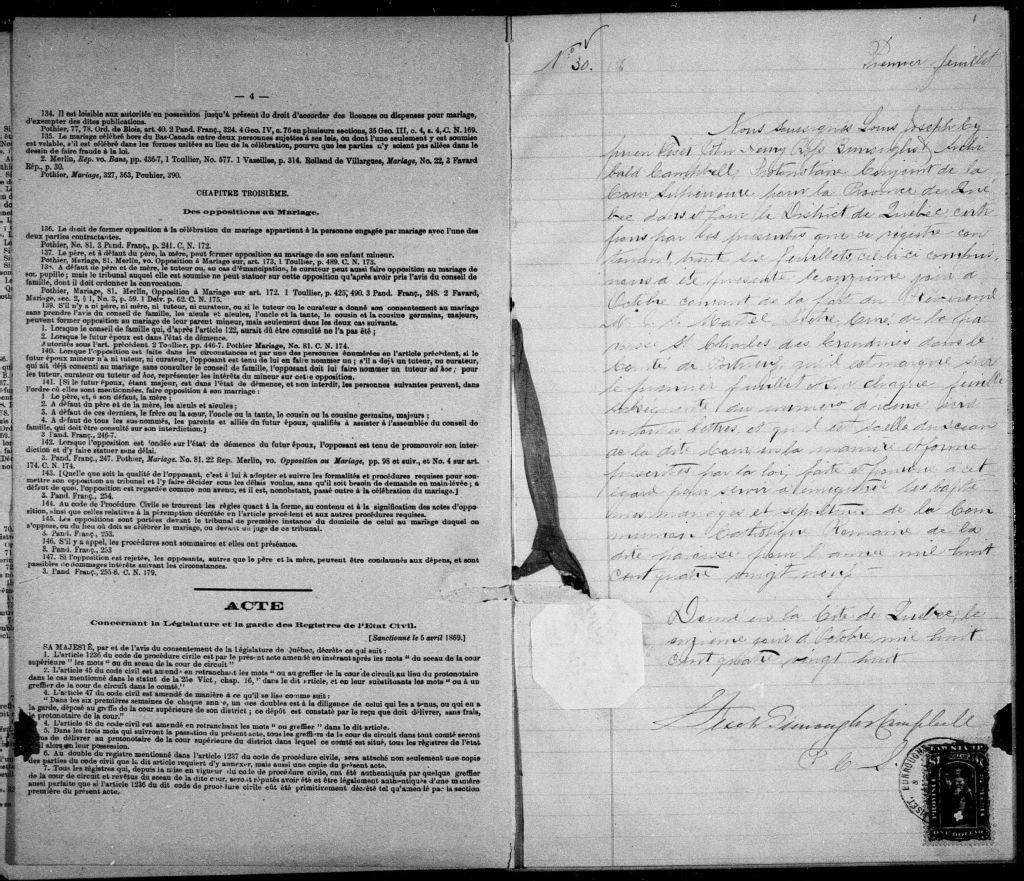 — 4 —
134. Il est loisible aux autorités en possession jusqu'à présent du droit d'accorder des licences ou dispenses pour mariage,
d'exempter des dites publications.
Pothier, 77, 78. Ord. de Blois, art 40. 2 Pand. Franç., 324. 4 Geo. IV, c. 76 en plusieurs sections, 35 Geo. III, c. 4, s. 4, C. N. 169.
135. Le mariage célébré hors du Bas-Canada entre deux personnes sujettes à ses lois, ou dont l'une seulement y est soumise
est valable, s'il est célébré dans les formes usitées au lieu de la célébration, pourvu que les parties n'y soient pas allées dans le
dessein de faire fraude à la loi.
2 Merlin, Rép. vo. Bans, pp. 436-7, 1 Toullier, No. 577. 1 Vazeilles, p. 314. Rolland de Villargues, Mariage, No. 22, 3 Favard
Rép., p. 30.
Pothier, Mariage, 327, 363, Pouhier, 390.
CHAPITRE TROISIÈME.
Des oppositions au Mariage.
136. Le droit de former opposition à la célébration du mariage appartient à la personne engagée par mariage avec l'une des
deux parties contractantes.
Pothier, No. 81. 3 Pand. Franç., p. 241. C. N. 172.
137. Le père, et à défaut du père, la mère, peut former opposition au mariage de son enfant mineur.
Pothier, Mariage, 81. Merlin, vo. Opposition à Mariage sur art. 173, 1 Toullier, p. 489. C. N. 173.
138. A défaut de père et de mère, le tuteur ou, au cas d'émancipation, le curateur peut aussi faire opposition au mariage de
son pupille; mais le tribunal auquel elle est soumise ne peut statuer sur cette opposition qu'après avoir pris l'avis du conseil de
famille, dont il doit ordonner la convocation.
Pothier, Mariage, 81. Merlin, Opposition à Mariage sur art. 172. 1 Toullier, p. 425, 490. 3 Pand. Franç., 248. 2 Favard,
Mariage, sec. 2, § 1, No. 3, p. 59. 1 Delv. p. 62. C. N. 175.
139. S'il n'y a ni père, ni mère, ni tuteur, ni curateur, ou si le tuteur ou le curateur a donné son consentement au mariage
sans prendre l'avis du conseil de famille, les aïeuls et aïeules, l'oncle et la tante, le cousin et la cousine germains, majeurs,
peuvent former opposition au mariage de leur parent mineur, mais seulement dans les deux cas suivants.
1. Lorsque le conseil de famille qui, d'après l'article 122, aurait dû être consulté ne l'a pas été;
2. Lorsque le futur époux est dans l'état de démence.
Autorités sous l'art. précédent 2 Toullier, pp. 446-7. Pothier Mariage, No. 81. C. N. 174.
140. Lorsque l'opposition est faite dans les circonstances et par une des personnes énumérées en l'article précédent, si le
futur époux mineur n'a ni tuteur, ni curateur, l'opposant est tenu de lui en faire nommer un; s'il a déjà un tuteur, ou curateur,
qui ait déjà consenti au mariage sans consulter le conseil de famille, l'opposant doit lui faire nommer un tuteur ad hoc; pour
les tuteur, curateur ou tuteur ad hoc, représenter les intérêts du mineur sur cette opposition.
141. [Si le futur époux, étant majeur, est dans l'état de démence, et non interdit, les personnes suivantes peuvent, dans
l'ordre où elles sont mentionnées, faire opposition à son mariage:
1. Le père, et, à son défaut, la mère;
2. A défaut du père et de la mère, les aïeuls et aïeules;
3. A défaut de ces derniers, le frère ou la sœur, l'oncle ou la tante, le cousin ou la cousine germains, majeurs;
4. A défaut de tous les sus-nommés, les parents et alliés du futur époux, qualifiés à assister à l'assemblée du conseil de
famille, qui doit être consulté sur son interdiction.]
3 Pand. Franç., 246-7.
142. Lorsque l'opposition est fondée sur l'état de démence du futur époux, l'opposant est tenu de promouvoir son inter-
diction et d'y faire statuer sans délai.
3. Pand. Franç., 247. Pothier, Mariage. No. 81. 22 Rep. Merlin, vo. Opposition au Mariage, pp. 98 et suiv., et No. 4 sur art.
174. C. N. 174.
143. [Quelle que soit la qualité de l'opposant, c'est à lui à adopter et suivre les formalités et procédures requises pour sou-
mettre son opposition au tribunal et l'y faire décider sous les délais voulus, sans qu'il soit besoin de demande en main-levée; a
défaut de quoi, l'opposition est regardée comme non avenue, et il est, nonobstant, passé outre à la célébration du mariage.]
3. Pand. Franç., 254.
144. Au code de Procédure Civile se trouvent les règles quant à la forme, au contenu et à la signification des actes d'oppo-
sition, ainsi que celles relatives à la péremption décrétée en l'article précédent et aux autres procédures requises.
145. Les oppositions sont portées devant le tribunal de première instance du domicile de celui au mariage duquel on
s'oppose, ou du lieu où doit se célébrer le mariage, ou devant un juge de ce tribunal.
3. Pand. Franç., 253.
146. S'il y a appel, les procédures sont sommaires et elles ont préséance.
3. Pand. Franç., 253
147. Si l'opposition est rejetée, les opposants, autres que le père et la mère, peuvent être condamnés aux dépens, et sont
passibles de dommages intérêts suivant les circonstances.
3. Pand. Franç., 255-8. C. N. 179.
ACTE
Concernant la Législature et la garde des Registres de l'Etat Civil.
[Sanctionné le 5 avril 1869.]
SA MAJESTÉ, par et de l'avis du consentement de la Législature de Québec, décrète ce qui suit:
1. L'article 1236 du code de procédure civile est par le présent acte amendé en insérant après les mots "du sceau de la cour
supérieure" les mots "ou du sceau de la cour de circuit"
2. L'article 45 du code civil est amendé en retranchant les mots "ou au greffier de la cour de circuit au lieu du protonotaire
dans le cas mentionné dans le statut de la 25e Vict., chap. 16," dans le dit article, et en leur substituant les mots "ou à un
greffier de la cour de circuit dans le comté."
3. L'article 47 du code civil est amendé de manière à ce qu'il se lise comme suit:
"Dans les six premières semaines de chaque année, un des doubles est à la diligence de celui qui les a tenus, ou qui en a
la garde, déposé au greffe de la cour supérieure de son district; ce dépôt est constaté par le reçu que doit délivrer, sans frais,
le protonotaire de la cour."
4. L'article 48 du code civil est amendé en retranchant les mots "ou greffier" dans le dit article.
5. Dans les trois mois qui suivront la passation du présent acte, tous les greffiers de la cour de circuit dans tout comté seront
tenus de délivrer au protonotaire de la cour supérieure du district dans lequel ce comté est situé, tous les régistres de l'état
civil alors en leur possession.
6. Au double du registre mentionné dans l'article 1237 du code de procédure civile, sera attaché non seulement une copie
des parties du code civil que le dit article requiert d'y annexer, mais aussi une copie du présent acte.
7. Tous les régistres qui, depuis la mise en vigueur du code de procédure civile, ont été authentiqués par quelque greffier
de la cour de circuit et revêtus du sceau de la dite cour, seront réputés avoir été et être légalement authentiqués d'une manière
aussi parfaite que si l'article 1236 du dit code de procédure civile eût été primitivement décrété tel qu'amendé par la section
première du présent acte.
1
No 30.
Premier feuillet
Nous soussignés Louis Joseph Cy
prien Fiset John Henry Ross Burroughs et Archi
bald Campbell, Protonotaire Conjoint de la
Cour Supérieure pour la Province de Qué
bec dans & pour le District de Québec certi
fions par les présentes que ce registre con
tenant huit feuillets, celui ci compris,
nous a été présenté le onzième jour d
Octobre courant de la part du Révérend
M. Martel Prêtre Curé de la pa
roisse St. Charles des Grondines dans le
Comté de Portneuf, qu'il est marqué sur
le premier feuillet et sur chaque feuille
subséquente du numéro d'icelui écrit
en toutes lettres, et qu'il est scellé du sceau
de la dite Cour, en la manière et forme
prescrites par la loi, faite et pourvue à cet
égard pour servir à enregistrer les bapte
mes, mariages et sépultures de la Com
munion Catholique Romaine de la
dite paroisse pour l'année mil huit
cent quatre vingt neuf—
Donné en la Cité de Québec, le
onzième jour d'Octobre mil huit
cent quatre vingt huit
Fiset Burroughs Campbell
P. C. S.
FISET BURROUGHS &
LAW STAMP
ONE DOLLAR